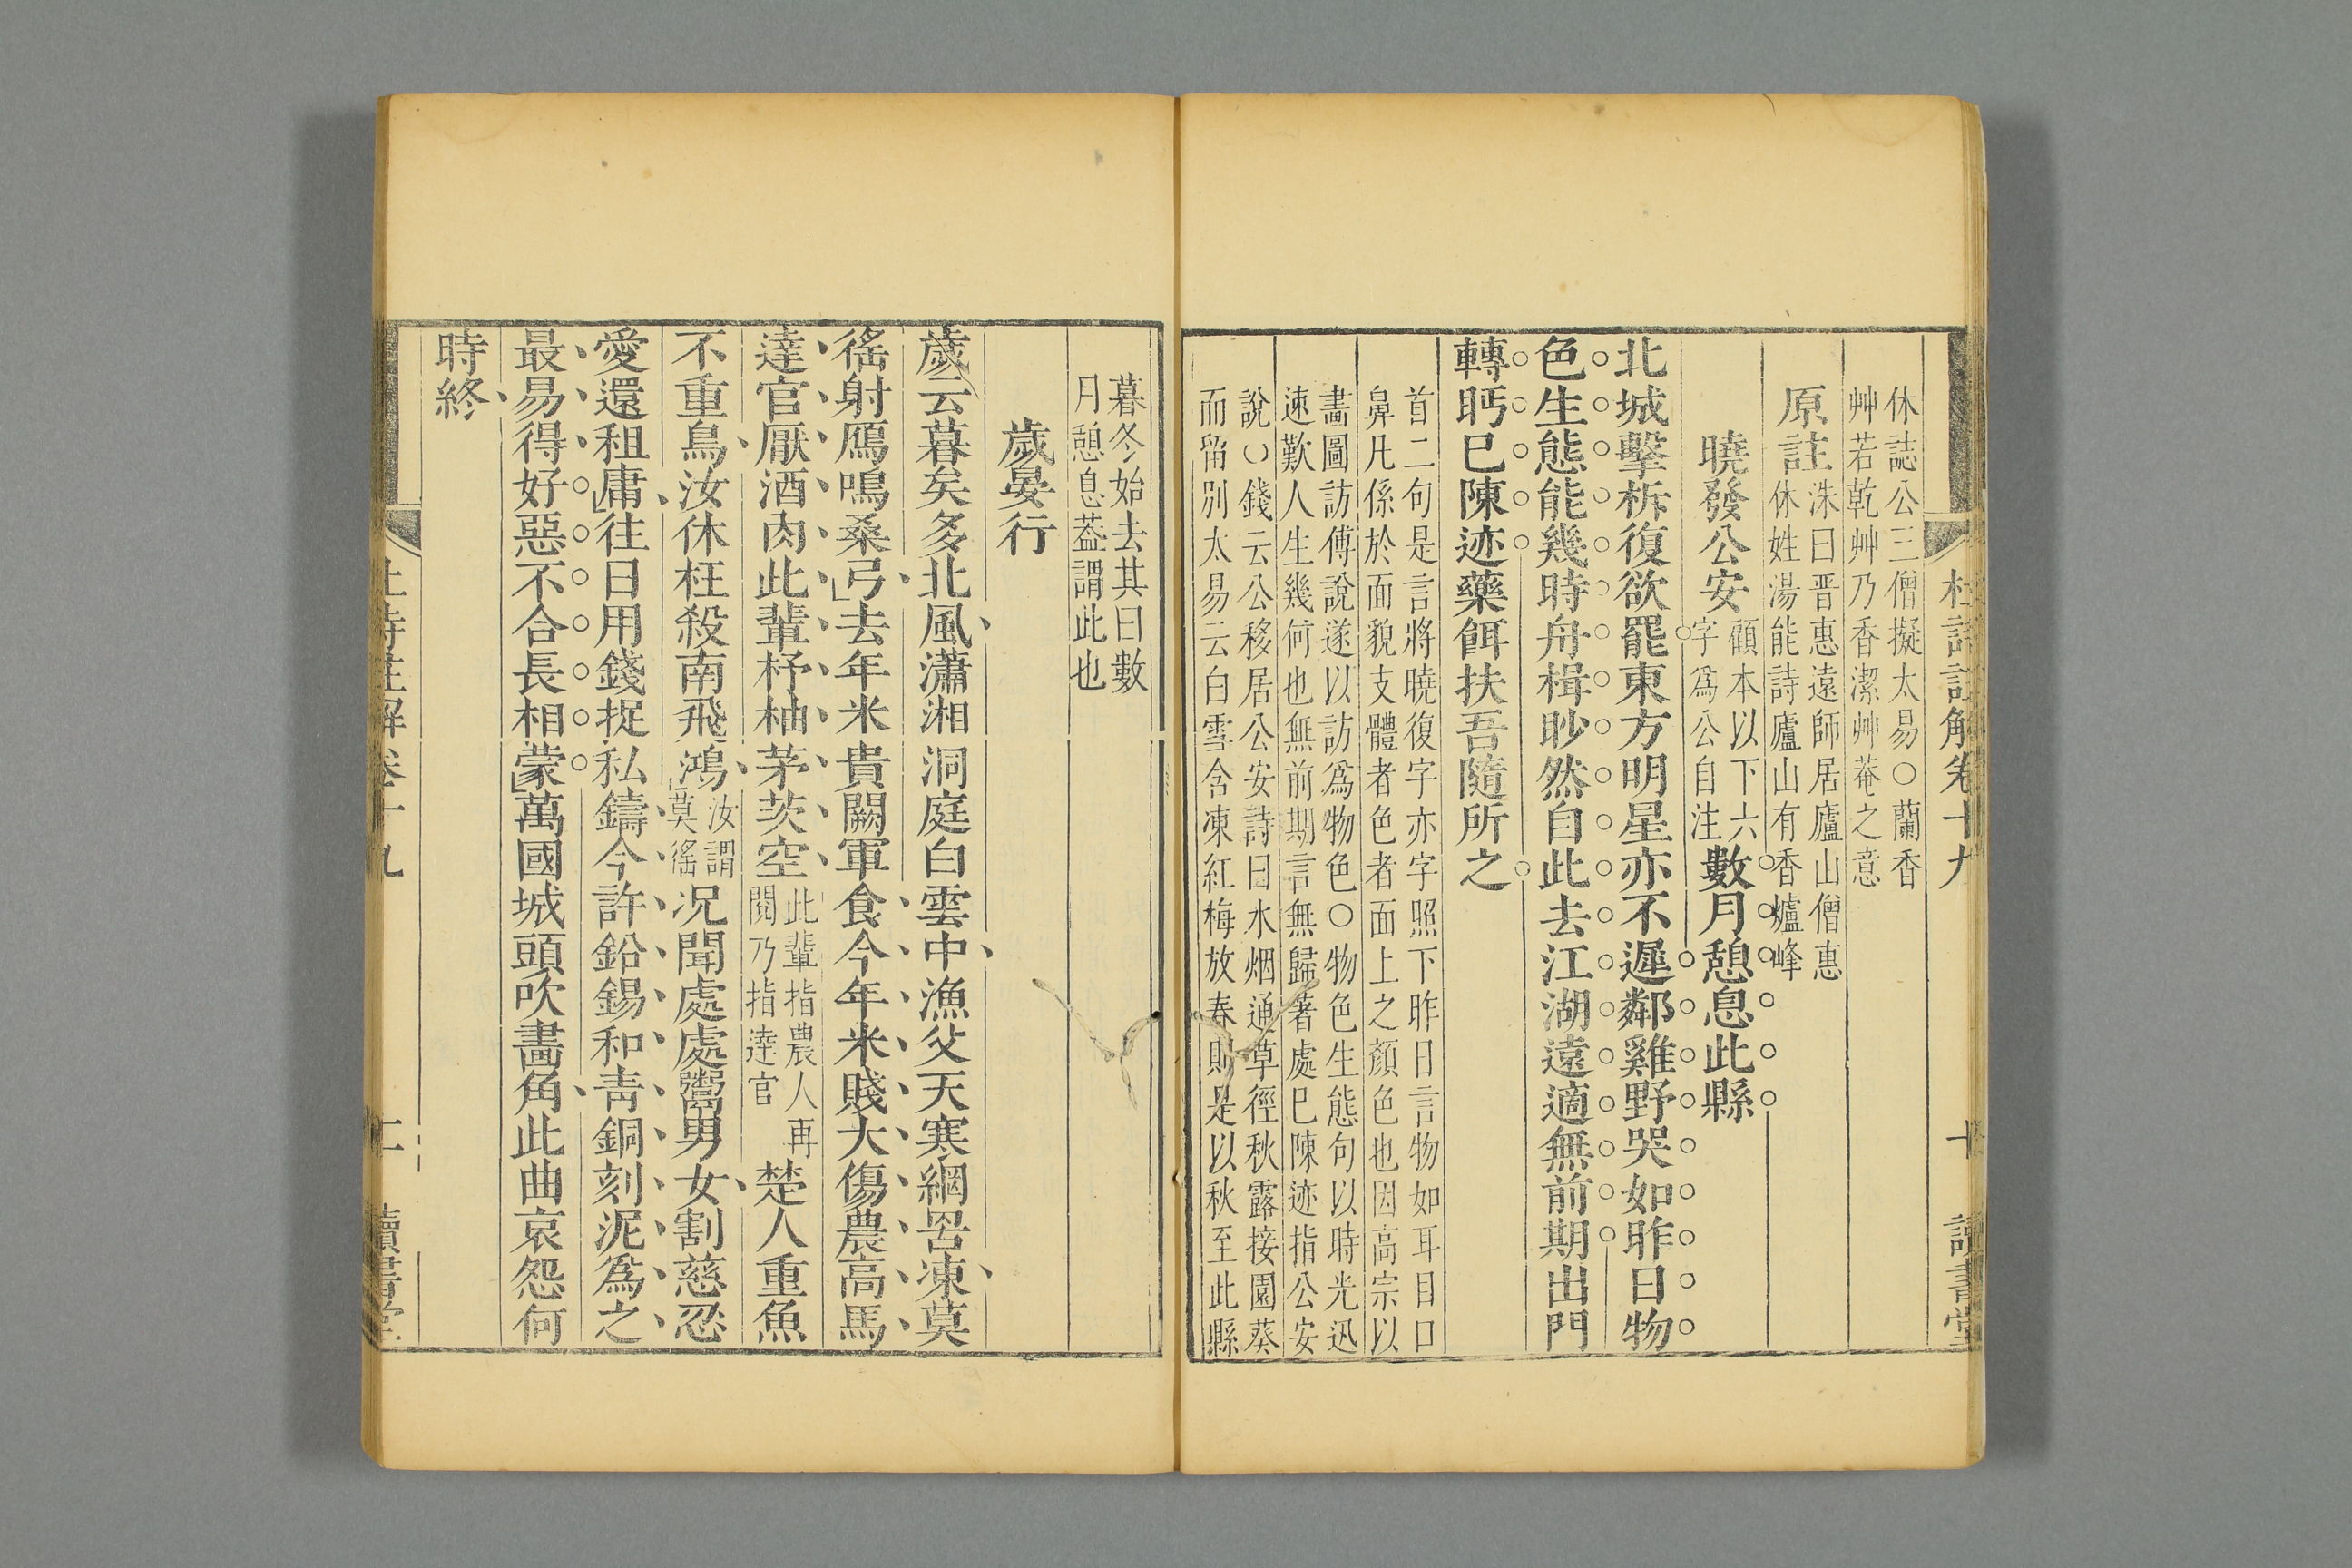 杜詩註解卷十九
十
讀書堂
休誌公三僧擬太易○蘭香
艸若乾艸乃香潔艸菴之意
原註
洙曰晋惠遠師居廬山僧惠
休姓湯能詩廬山有香爐峰
曉發公安
顧本以下六
字爲公自注
數月憩息此縣
北城擊柝復欲罷東方明星亦不遲鄰雞野哭如昨日物
色生態能幾時舟楫眇然自此去江湖遠適無前期出門
轉眄已陳迹藥餌扶吾隨所之
首二句是言將曉復字亦字照下昨日言物如耳目口
鼻凡係於面貌支體者色者面上之顏色也因高宗以
畵圖訪傅說遂以訪爲物色○物色生態句以時光迅
速歎人生幾何也無前期言無歸著處已陳迹指公安
說○錢云公移居公安詩曰水烟通草徑秋露接園葵
而留別太易云白雪含凍紅梅放春則是以秋至此縣
暮冬始去其曰數
月憩息葢謂此也
歲晏行
歲云暮矣多北風瀟湘洞庭白雲中漁父天寒網罟凍莫
徭射鴈鳴桑弓去年米貴闕軍食今年米賤大傷農高馬
達官厭酒肉此輩杼柚茅茨空
此輩指農人再
閱乃指達官
楚人重魚
不重鳥汝休枉殺南飛鴻
汝謂
莫徭
况聞處處鬻男女割慈忍
愛還租庸往日用錢捉私鑄今許鉛錫和靑銅刻泥爲之
最易得好惡不合長相蒙萬國城頭吹畵角此曲哀怨何
時終
杜詩註解卷十九
十一
讀書堂